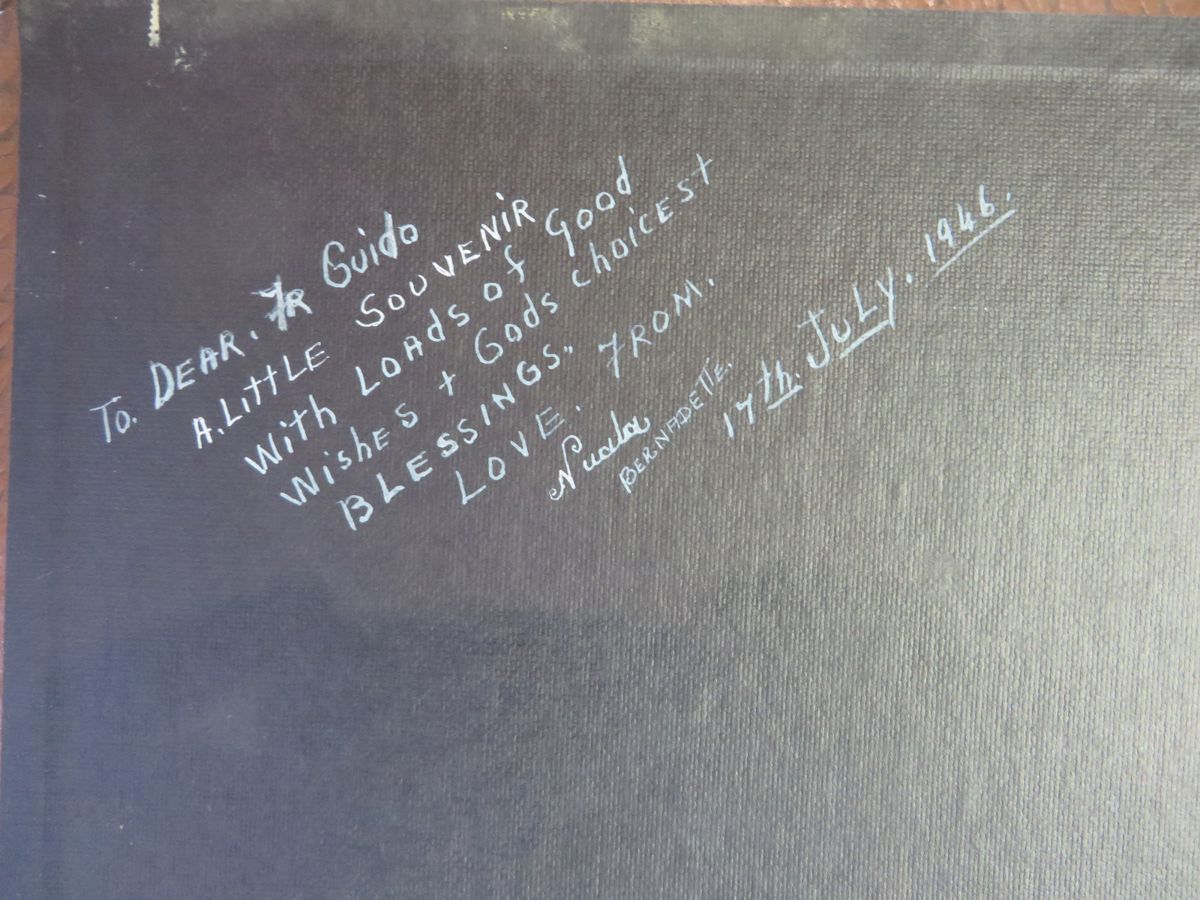 To. DEAR. FR Guido
A. LittLE SOUVENIR
With LOAdS of Good
WishES + Gods choicEst
BLESSINGS. FROM.
LOVE. Nuala
BERNADETTE.
17th. JULY. 1946.